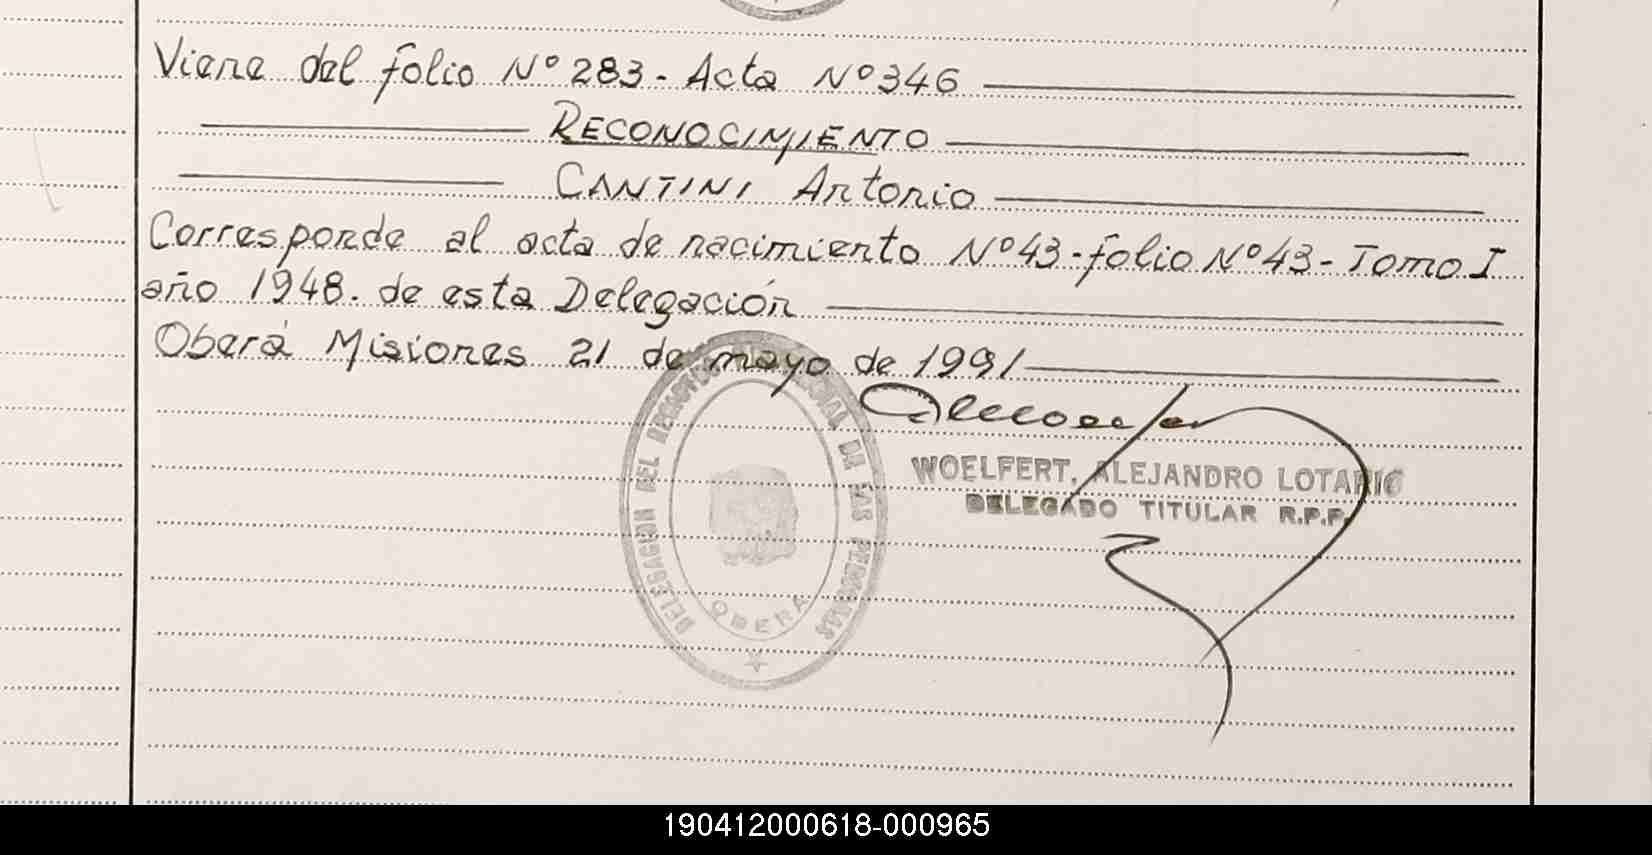 Viene del folio Nº 283 - Acta Nº 346
RECONOCIMIENTO
CANTINI Antonio
Corresponde al acta de nacimiento Nº 43 - folio Nº 43 - Tomo I
año 1948. de esta Delegación
Oberá Misiones 21 de mayo de 1991
WOELFERT, ALEJANDRO LOTARIO
DELEGADO TITULAR R.P.P.
DELEGACION DEL REGISTRO PROVINCIAL DE LAS PERSONAS
OBERA
190412000618-000965